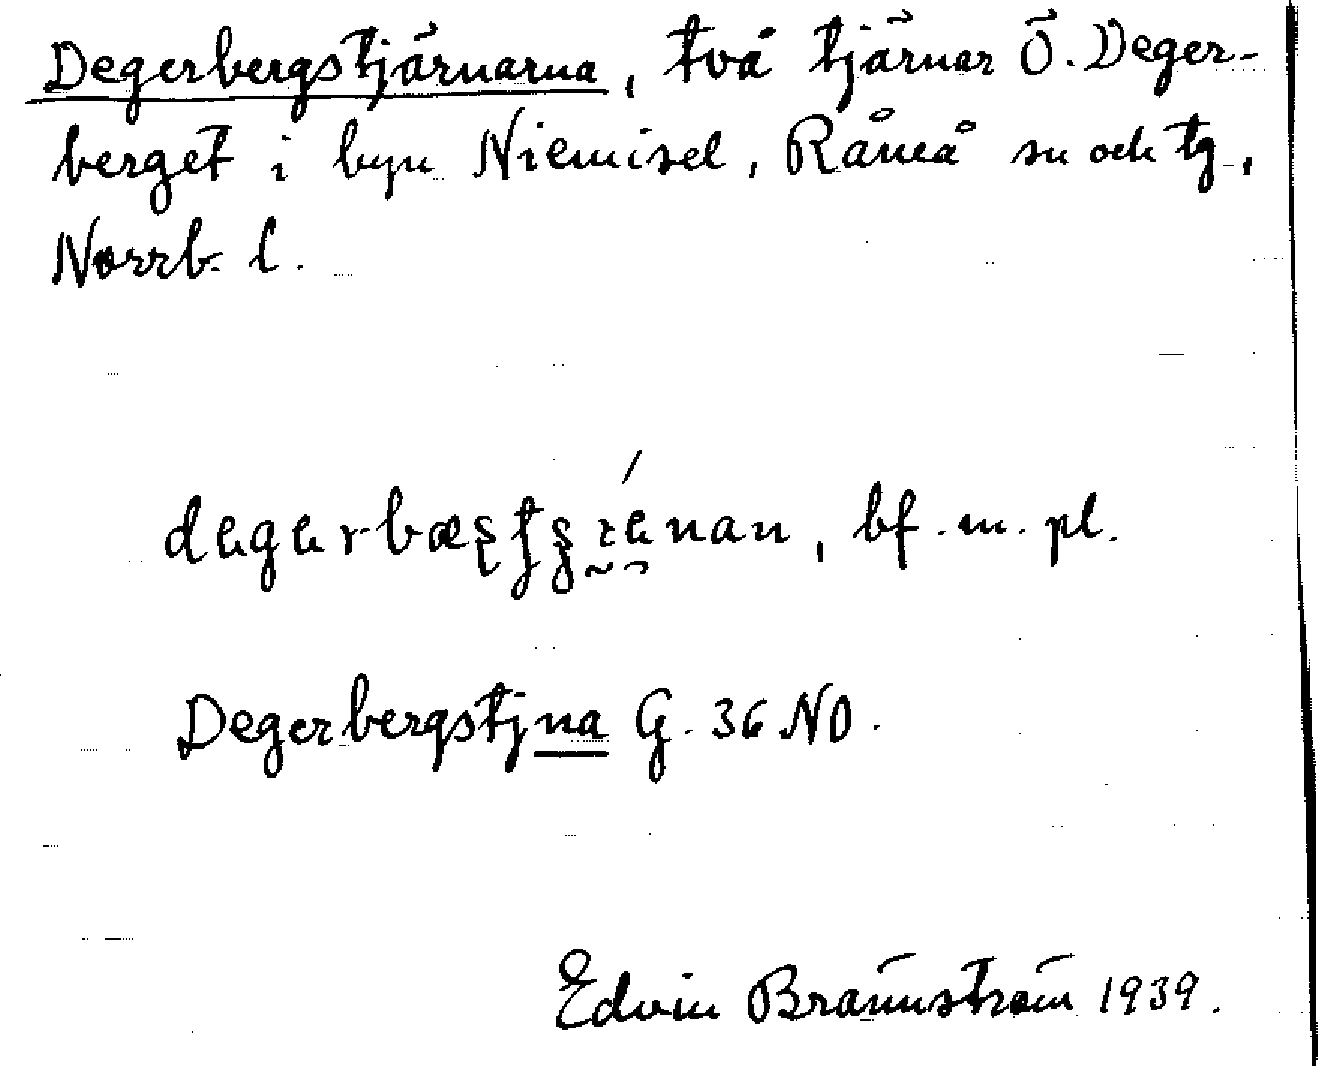 Degerbergstjärnarna, två tjärnar Ö. Deger-
berget i byn Niemisel, Råneå sn och tg,
Norrb. l.
bf. m. pl.
Degerbergstjna G. 36 NO.
Edvin Brännström 1939.